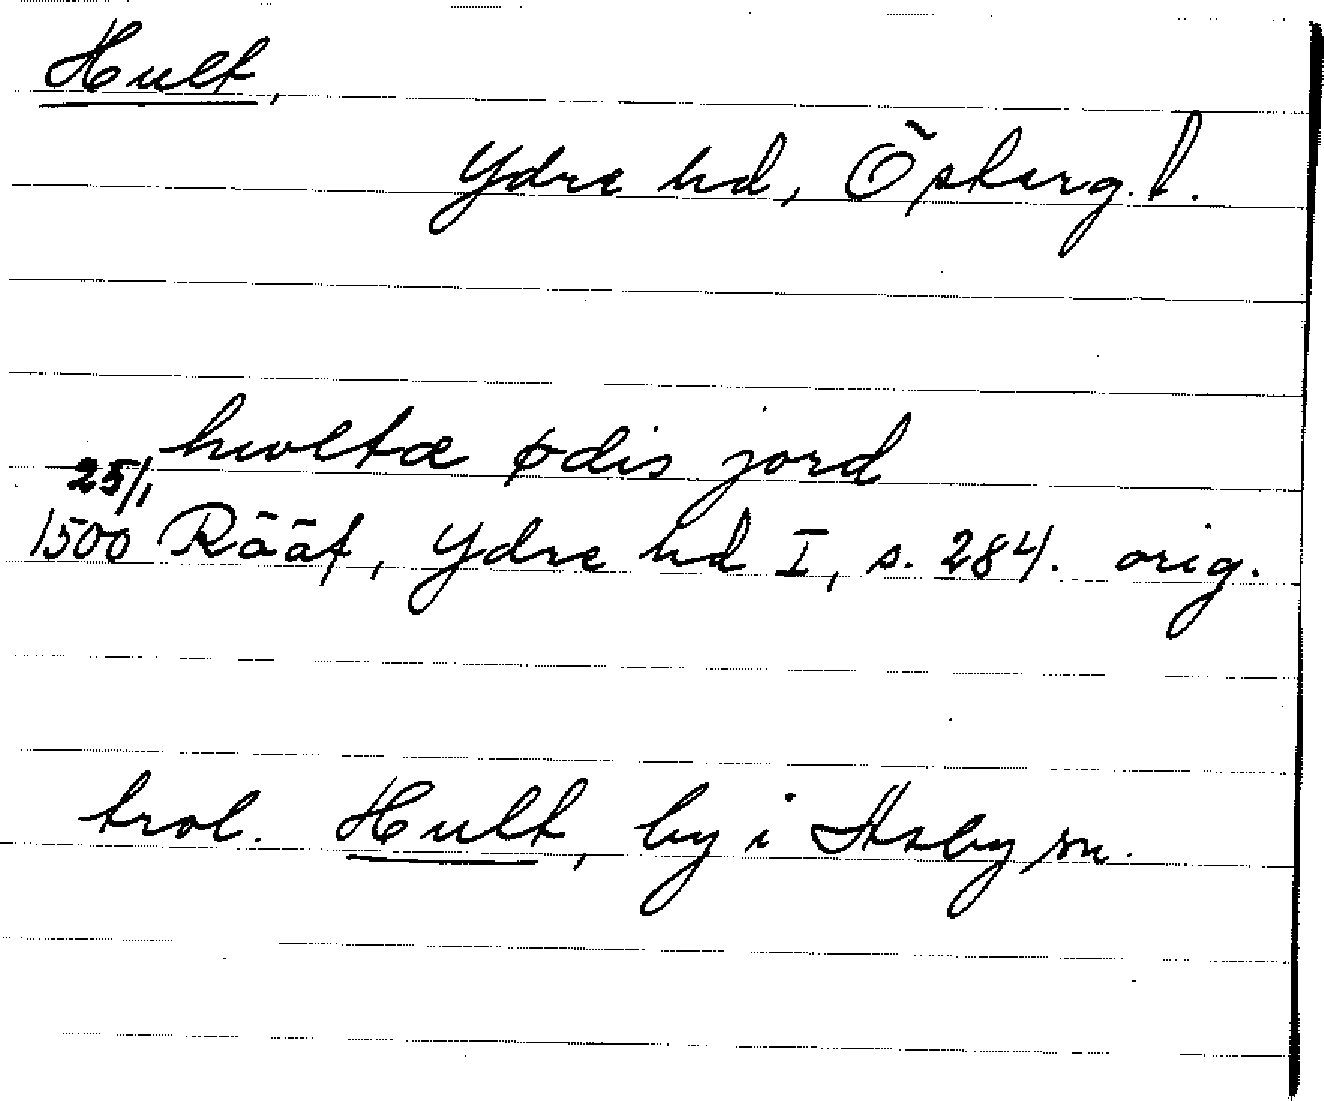 Hult,
Ydre hd, Östergl.
hwltæ ødis jord
25/1
1500 Rääf, Ydre hd I, s. 284. orig.
trol. Hult, by i Asby sn.